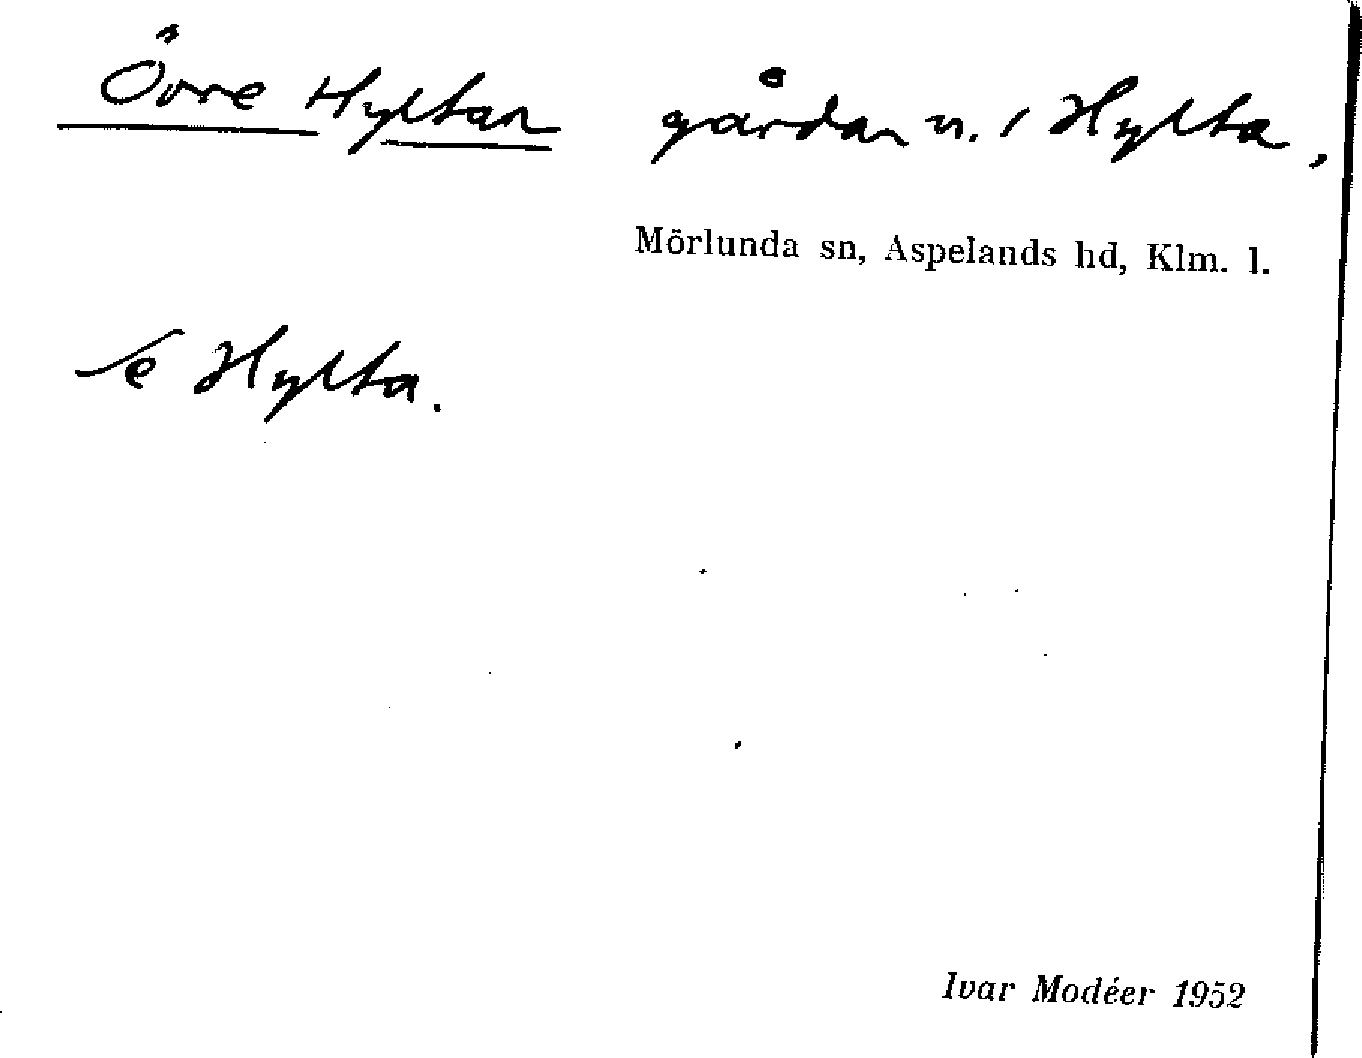 Övre Hyltan gårdar n. i Hylta,
Mörlunda sn, Aspelands hd, Klm. l.
se Hylta.
Ivar Modéer 1952